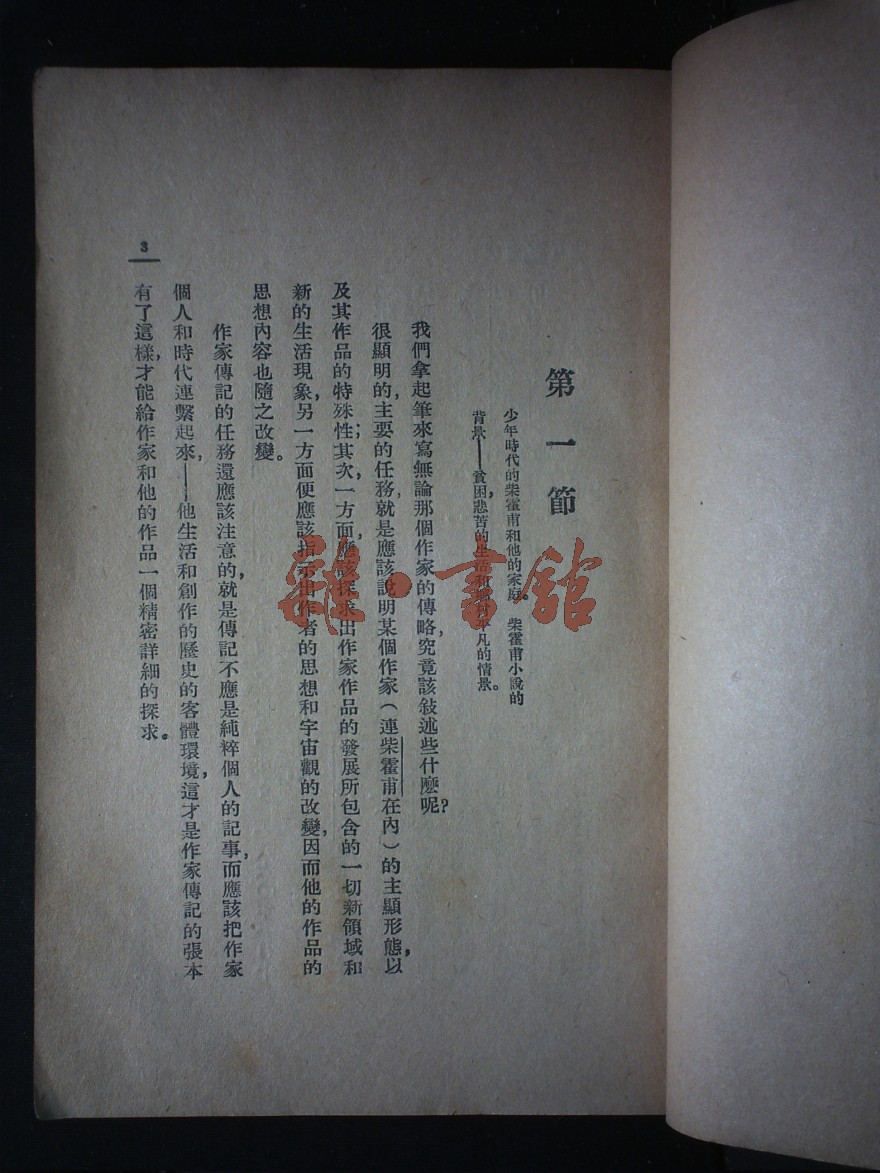 第一節
少年時代的柴霍甫和他的家庭。 柴霍甫小說的
背景——貧困,悲苦的生活和平凡的情景。
我們拿起筆來寫無論那個作家的傳略,究竟該敍述些什麼呢?
很顯明的,主要的任務,就是應該說明某個作家(連柴霍甫在內)的主顯形態,以
及其作品的特殊性;其次,一方面,應該探求出作家作品的發展所包含的一切新領域和
新的生活現象,另一方面便應該指示出作者的思想和宇宙觀的改變,因而他的作品的
思想內容也隨之改變。
作家傳記的任務還應該注意的,就是傳記不應是純粹個人的記事,而應該把作家
個人和時代連繫起來,——他生活和創作的歷史的客體環境,這才是作家傳記的張本
有了這樣,才能給作家和他的作品一個精密詳細的探求。
3
雜·書館